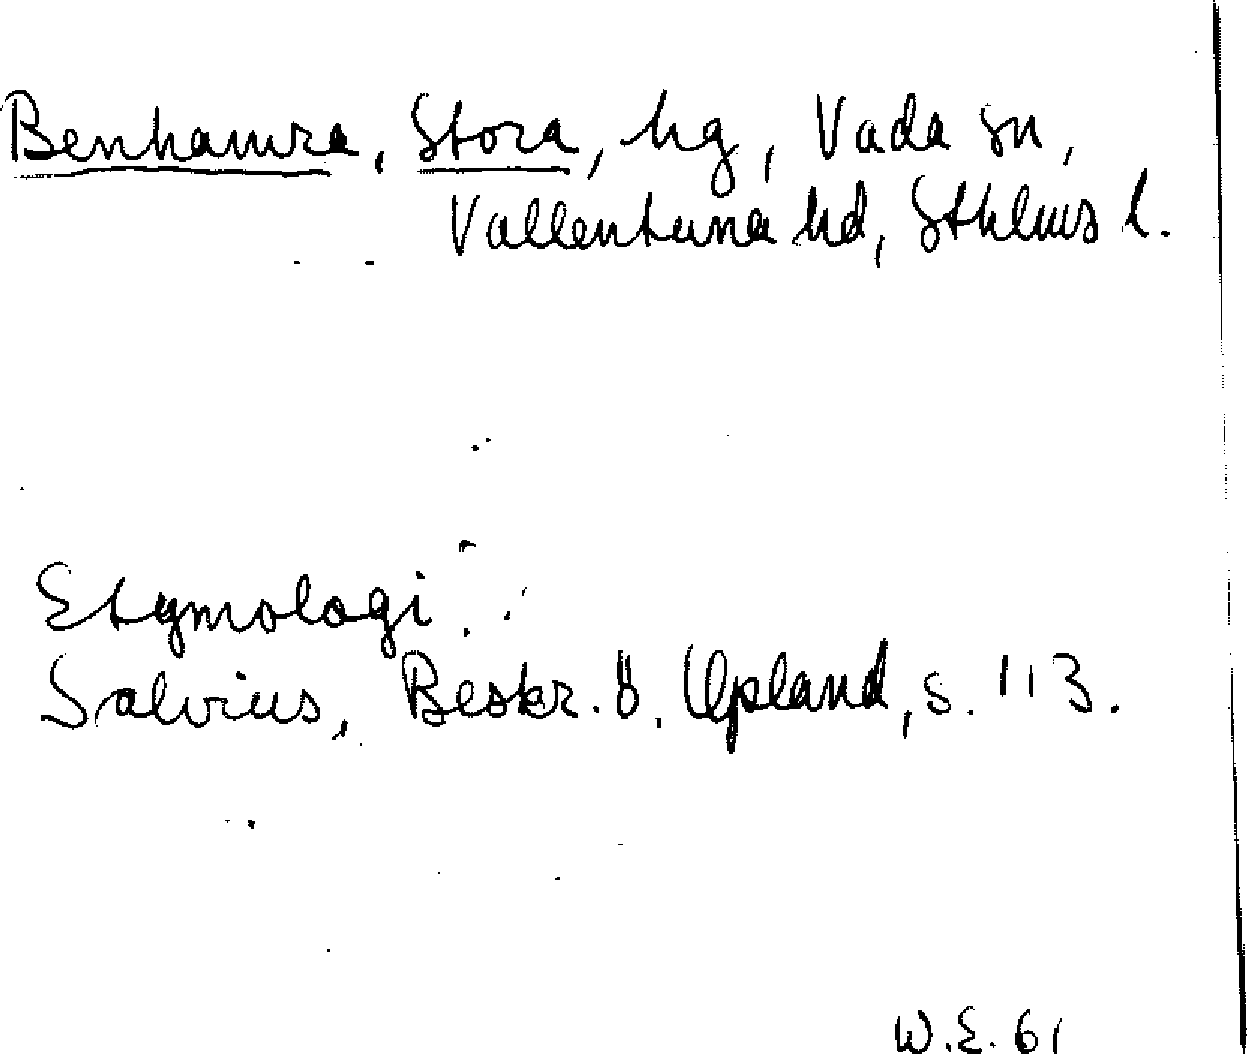 Benhamra, Stora, hg, Vada sn,
Vallentuna hd, Sthlms l.
Etymologi.
Salvius, Beskr. ö. Upland, s. 113.
W.E. 61